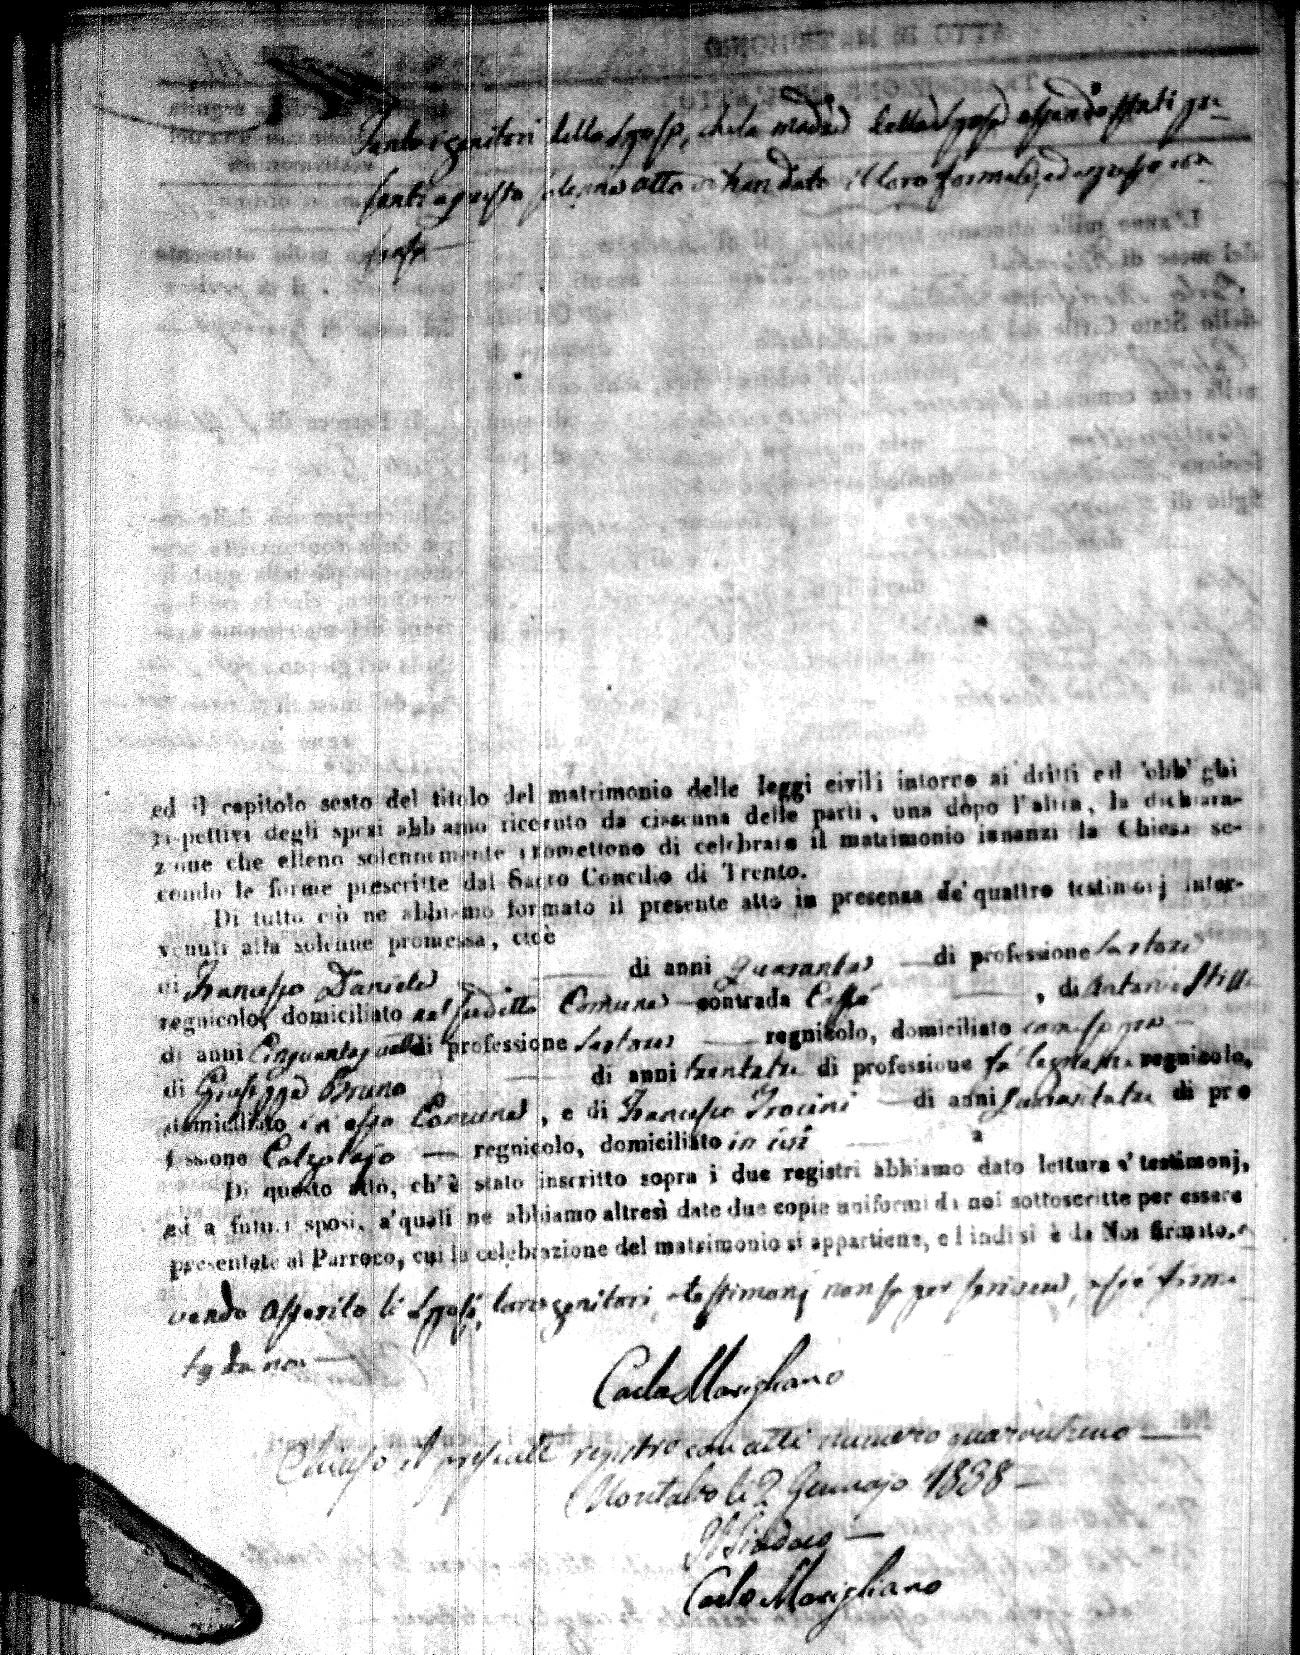 Tanto i genitori dello Sposo, che la madre della Sposa essendo stati pre-
senti a questo solenne atto vi han dato il loro formale, ed espresso con-
senso
ed il capitolo sesto del titolo del matrimonio delle leggi civili intorno ai dritti ed obblighi
rispettivi degli sposi abbiamo ricevuto da ciascuna delle parti, una dopo l'altra, la dichiara-
zione che elleno solennemente promettono di celebrare il matrimonio innanzi la Chiesa se-
condo le forme prescritte dal Sacro Concilio di Trento.
Di tutto ciò ne abbiamo formato il presente atto in presenza de' quattro testimonj inter-
venuti alla solenne promessa, cioè
di Francesco Daniele di anni quaranta di professione Sartore
regnicolo, domiciliato nel suddetto Comune contrada , di Antonio
di anni Cinquantaquattro di professione Sartore regnicolo, domiciliato come sopra
di Giuseppe Bruno di anni trentatre di professione fa legname regnicolo,
domiciliato in esso Comune, e di Francesco Trocini di anni quarantatre di pro
fessione Calzolajo regnicolo, domiciliato in ivi
Di questo atto, ch'è stato inscritto sopra i due registri abbiamo dato lettura a' testimonj,
ed a futuri sposi, a'quali ne abbiamo altresì date due copie uniformi da noi sottoscritte per essere
presentate al Parroco, cui la celebrazione del matrimonio si appartiene, e l indi si è da Noi firmato, a
vendo asserito li Sposi, loro genitori, e testimonj non saper scrivere, e si è firma
to da noi
Carlo Marigliano
Chiuso il presente registro con atti numero quarantuno
Montalto li 2 Gennajo 1838
Il Sindaco
Carlo Marigliano